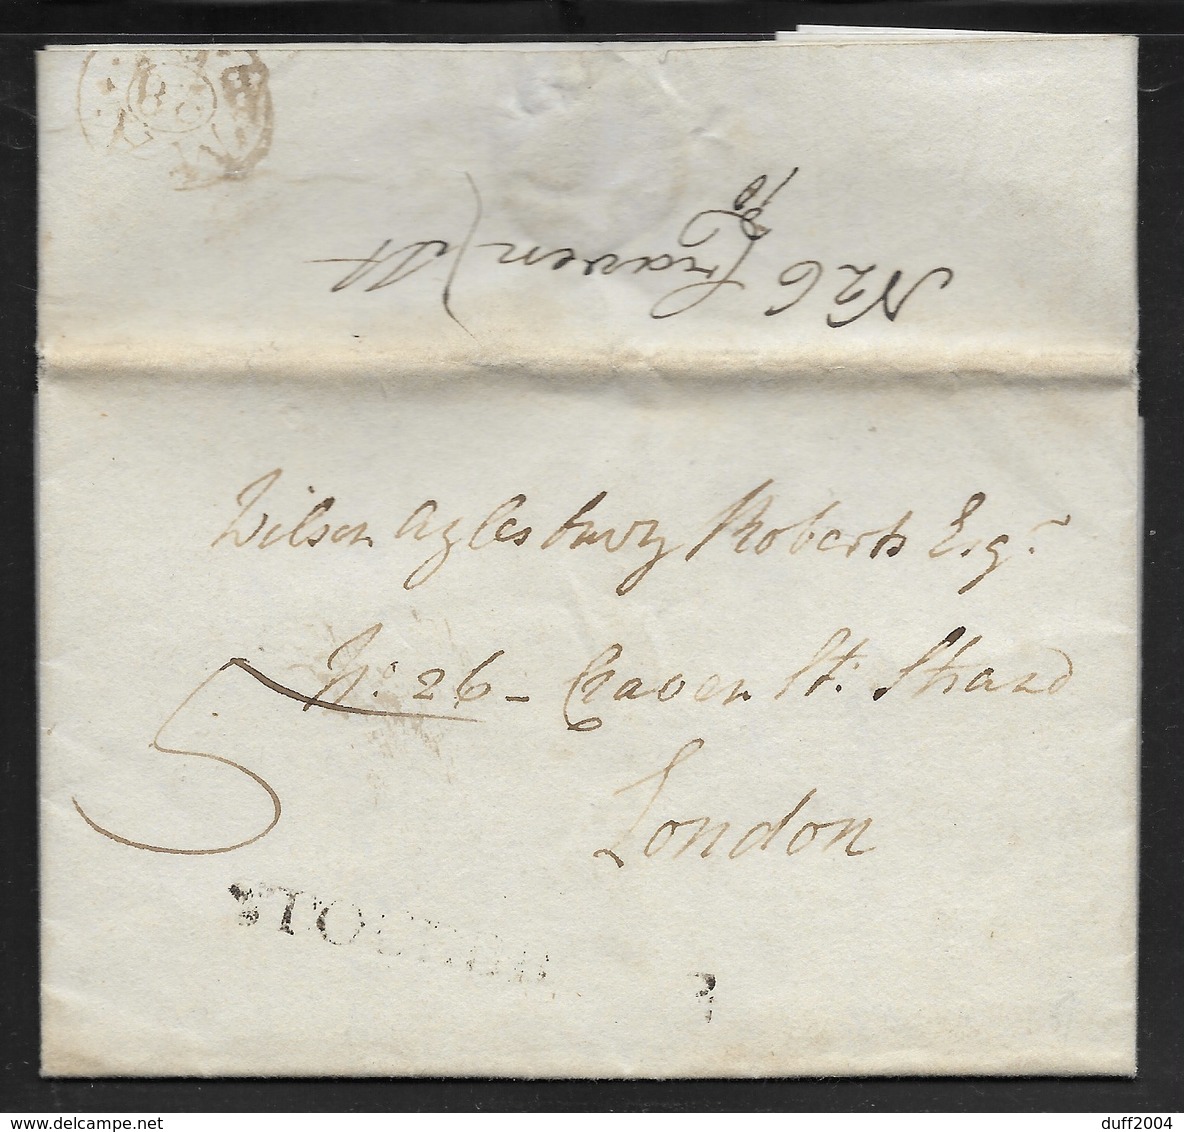 No 26 Craven St
Wilson Aylesbury Roberts Esqr.
No. 26 - Craven St. Strand
5
London
duff2004